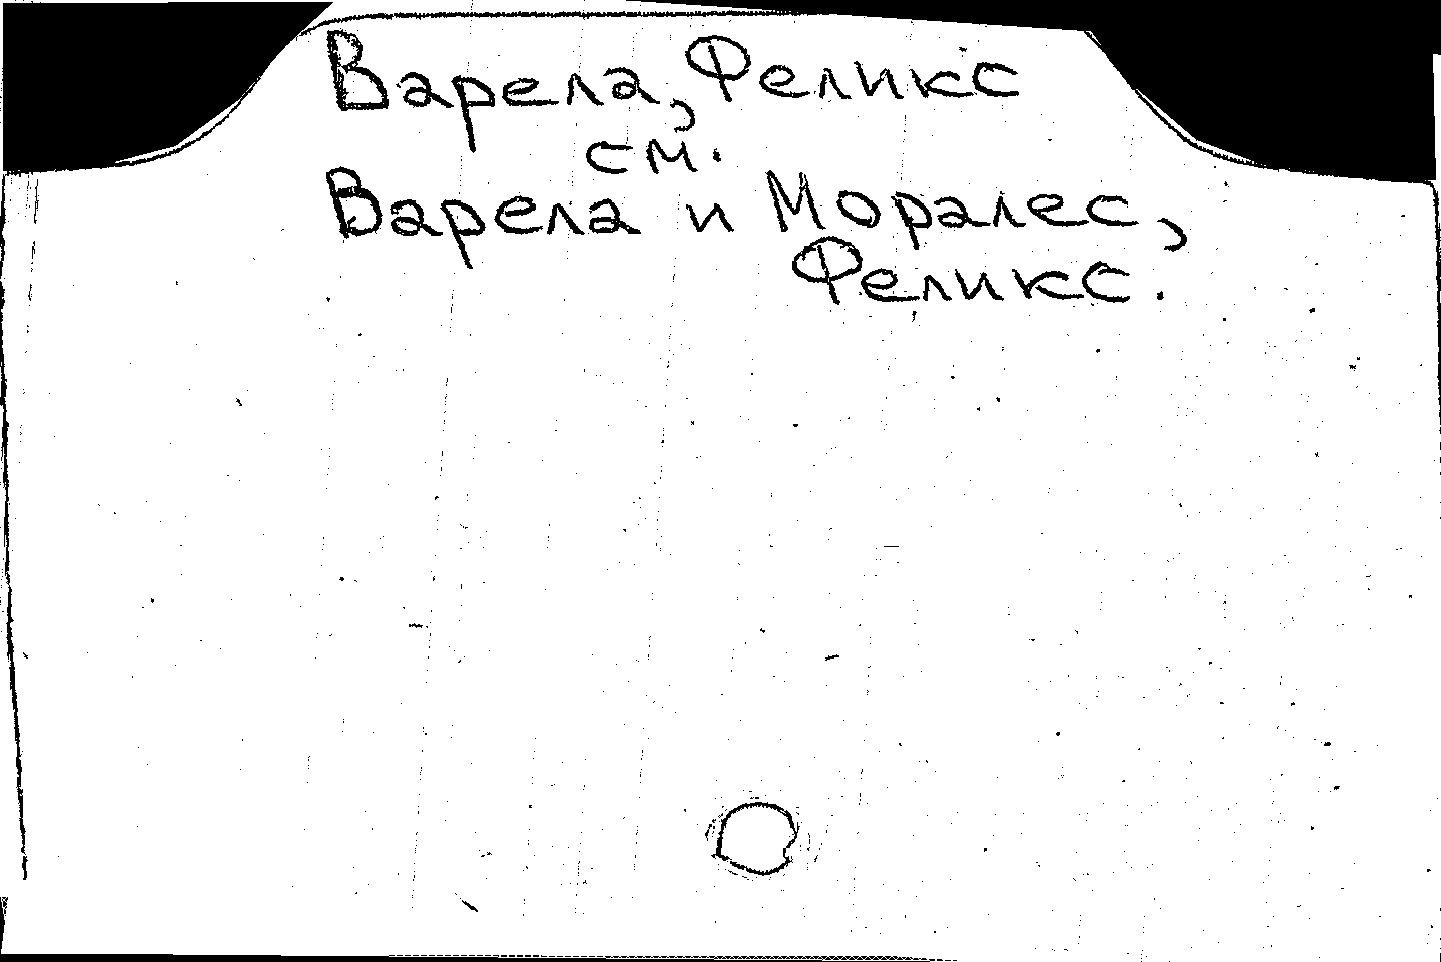 Варела, Феликс
см.
Варела и Моралес,
Феликс.